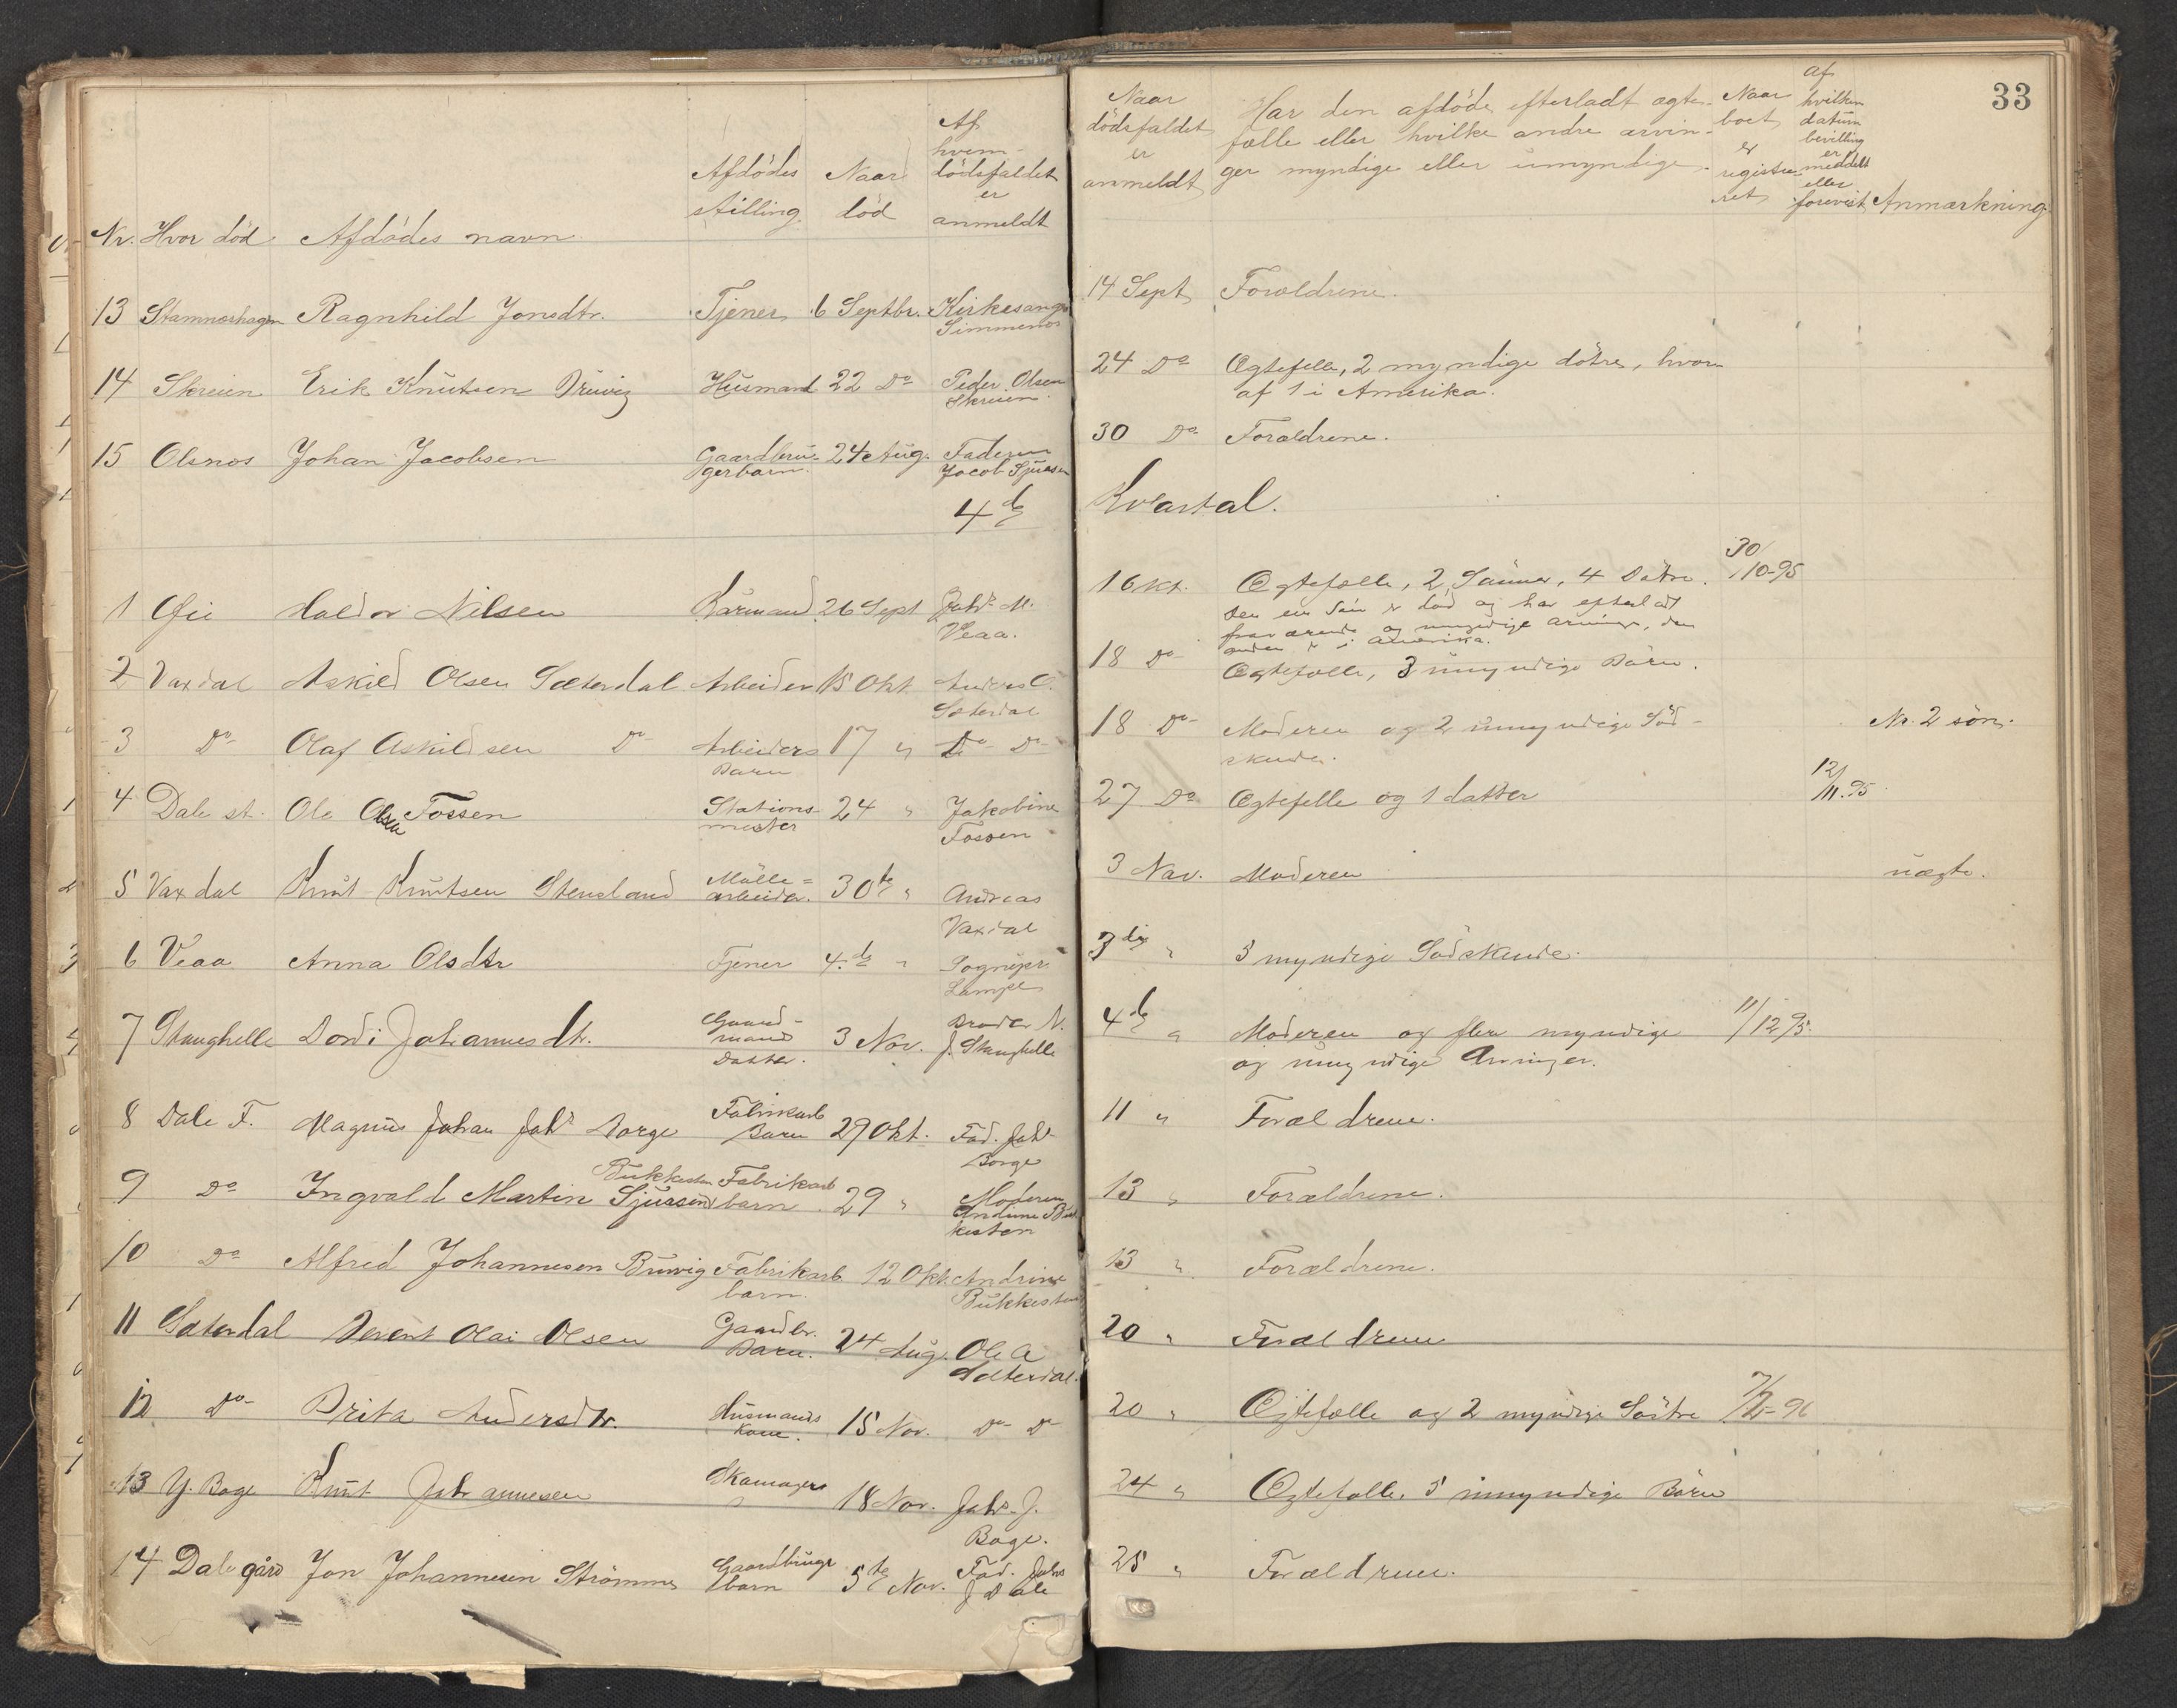 33
Nr. Hvor död Afdödes navn Afdödes stilling Naar död Af hvem dödsfaldet er anmeldt Naar dödsfaldet er anmeldt Har den afdöde efterladt ægtefælle eller hvilke andre arvinger myndige eller umyndige. Naar boet er registreret af hvilken datum bevilling er meddelt eller forevist Anmærkning
13 Stamneshagen Ragnhild Jonsdtr. Tjener 6 Septbr. Kirkesang. Simmenes 14 Sept Forældrene.
14 Skreien Erik Knutsen Husmand 22 Do Peder Olsen Skreien 24 Do Ægtefelle, 2 myndige dötre, hvoraf 1 i Amerika.
15 Olsnos Johan Jacobsen Gaardbrugerbarn. 24 Aug. Faderen Jacob Sjursen 30 Do Forældrene.
4de Kvartal.
1 Øie Haldor Nilsen Kårmand 26 Sept Johs M. Veaa. 1 Okt. Ægtefælle, 2 Sönner, 4 Dötre. 30/10-95
den en Sön er död og har efterladt
fraværende og umyndige arvinger, den
anden er i Amerika.
2 Vaxdal Askild Olsen Sæterdal Arbeider 15 Okt Anders O. Sæterdal 18 Do Ægtefælle, 3 umyndige Börn.
3 Do Olaf Askildsen Do Arbeiders Barn 17 " Do Do 18 Do Moderen og 2 umyndige Södskende. Nr. 2 sön.
4 Dale st. Ole Olsen Fossen Stationsmester 24 " Jakobine Fossen 27 Do Ægtefelle og 1 datter 12/11.95
5 Vaxdal Knut Knutsen Stensland Möllearbeider. 30te " Andreas Vaxdal 3 Nov. Moderen uægte.
6 Veaa Anna Olsdtr Tjener 4de " Sognepr. Lampe 3die " 3 myndige Södskende.
7 Stanghelle Dordi Johannesdt. Gaardmands Datter. 3 Nov. Broder N. J. Stanghelle 4de " Moderen og flere myndige og umyndige Arvinger. 11/12 95.
8 Dale F. Magnus Johan Johs Borge Fabrikarb Barn 29 Okt. Fad. Johs Borge 11 " Forældrene.
9 Do Ingvald Martin Sjursen Bukkesten Fabrikarb barn 29 " Moderen Andrine Bukkesten 13 " Forældrene.
10 Do Alfred Johannesen Bruvig Fabrikarb barn. 12 Okt. Andrine Bukkesten 13 " Forældrene.
11 Sæterdal Berent Olai Olsen Gaardbr. Barn. 24 Aug. Ole A Sæterdal. 20 " Forældrene
12 Do Brita Andersdtr. Husmands Kone. 15 Nov. Do Do 20 " Ægtefælle og 2 myndige Döttre
13 Y. Boge Knut Johannesen Skomager 18 Nov. Johs. J. Boge. 24 " Ægtefælle. 5 umyndige Börn
14 Dale gård Jon Johannesen Strömme Gaardbruger barn 5te Nov. Fad. Johs J Dale 25 " Forældrene.